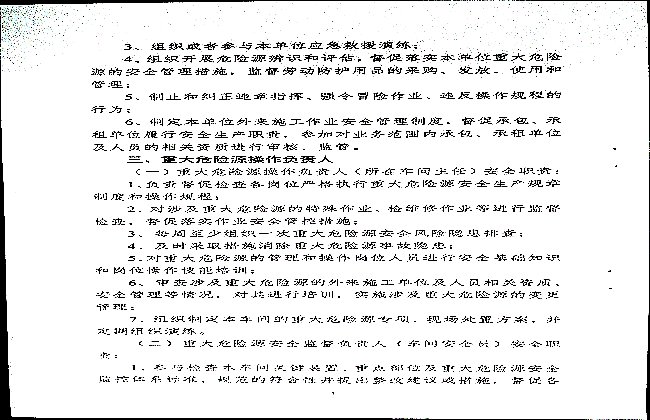 3、组织或者参与本单位应急救援演练；
4、组织开展危险源辨识和评估，督促落实本单位重大危险
源的安全管理措施，监督劳动防护用品的采购、发放、使用和
管理；
5、制止和纠正违章指挥、强令冒险作业、违反操作规程的
行为；
6、制定本单位外来施工作业安全管理制度，督促承包、承
租单位履行安全生产职责，参加对业务范围内承包、承租单位
及人员的相关资质进行审核、监管。
三、重大危险源操作负责人
（一）重大危险源操作负责人（所在车间主任）安全职责：
1.负责督促检查各岗位严格执行重大危险源安全生产规章
制度和操作规程；
2．对涉及重大危险源的特殊作业、检维修作业等进行监督
检查，督促落实作业安全管控措施；
3、每周至少组织一次重大危险源安全风险隐患排查；
4、及时采取措施消除重大危险源事故隐患；
5.对重大危险源的管理和操作岗位人员进行安全基础知识
和岗位操作技能培训；
6、审查涉及重大危险源的外来施工单位及人员相关资质、
安全管理等情况，对其进行培训，实施涉及重大危险源的变更
管理；
7、组织制定本车间的重大危险源专项、现场处置方案，并
定期组织演练。
（二）重大危险源安全监督负责人（车间安全员）安全职
责：
1、参与检查本车间关键装置、重点部位及重大危险源安全
监控体系标准、规范的符合性并提出整改建议或措施，督促各